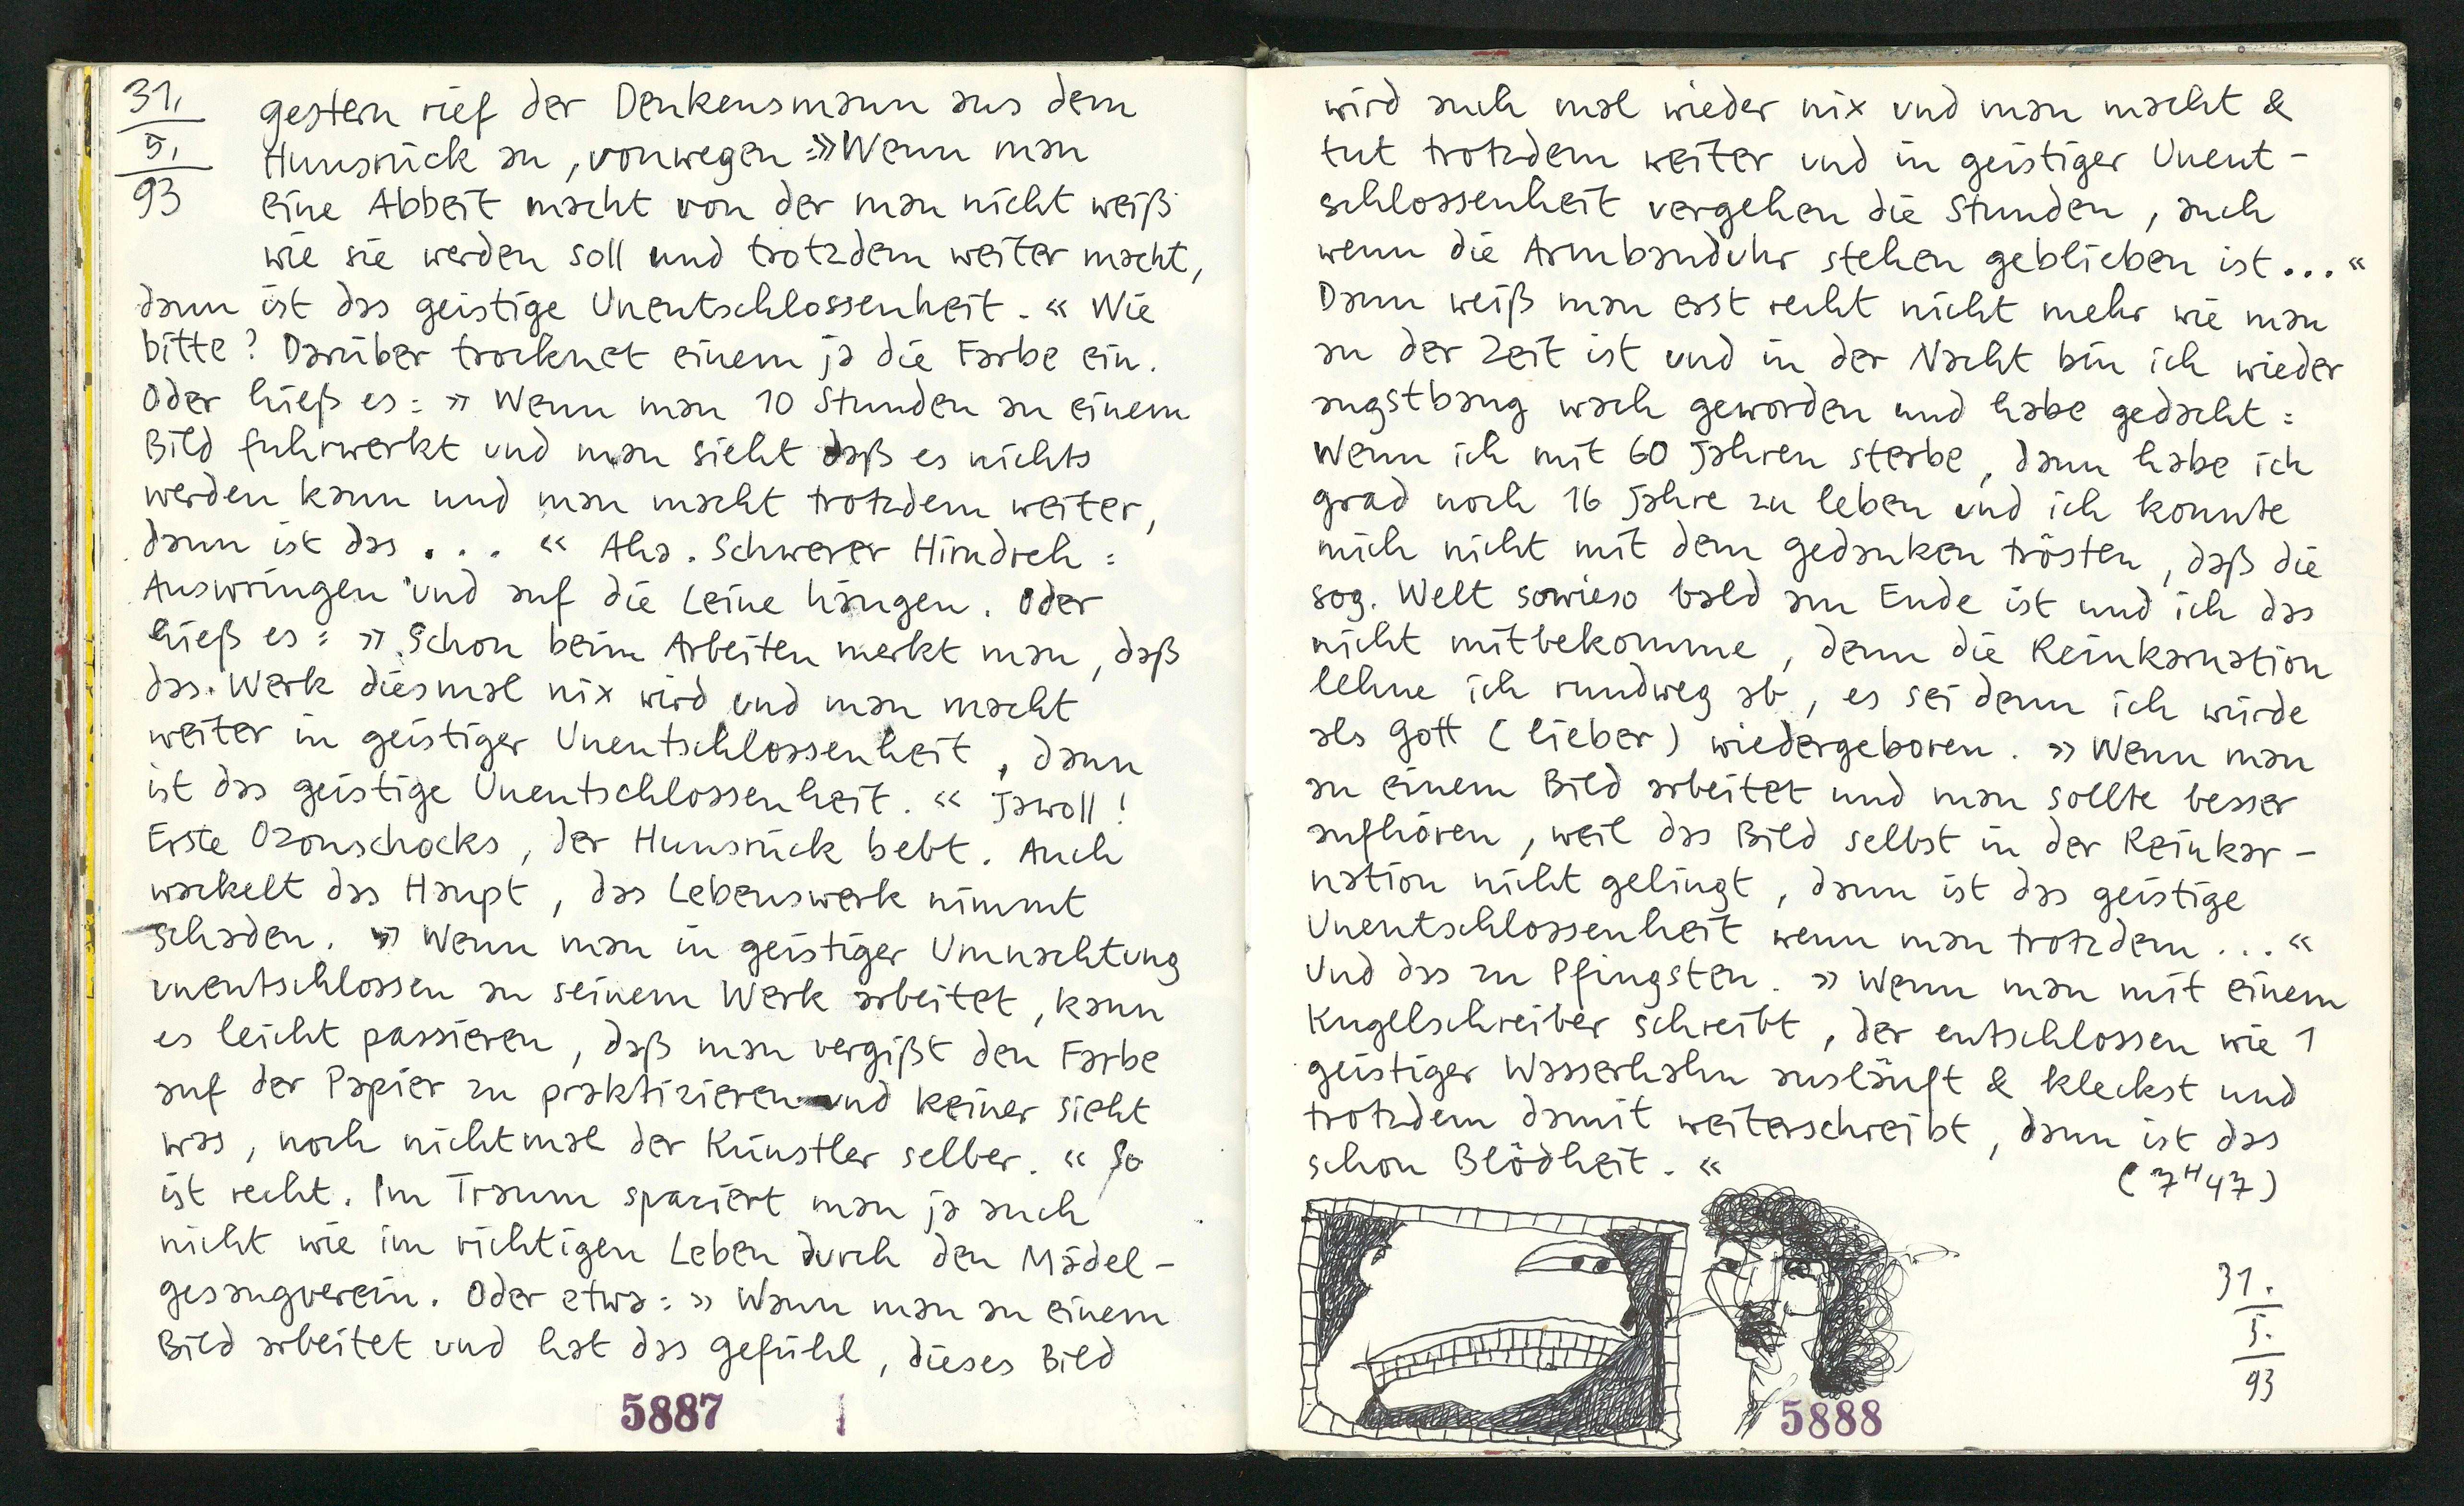 31.
5.
93
gestern rief der Denkensmann aus dem
Hunsrück an, vonwegen :»Wenn man
eine Abbeit macht von der man nicht weiß
wie sie werden soll und trotzdem weiter macht,
dann ist das geistige Unentschlossenheit.« Wie
bitte? Darüber trocknet einem ja die Farbe ein.
Oder hieß es: »Wenn man 10 Stunden an einem
Bild fuhrwerkt und man sieht daß es nichts
werden kann und man macht trotzdem weiter,
dann ist das . . . « Aha. Schwerer Hirndreh:
Auswringen und auf die Leine hängen. Oder
hieß es: »Schon beim Arbeiten merkt man, daß
das Werk diesmal nix wird und man macht
weiter in geistiger Unentschlossenheit, dann
ist das geistige Unentschlossenheit.« Jawoll!
Erste Ozonschocks, der Hunsrück bebt. Auch
wackelt das Haupt, das Lebenswerk nimmt
schaden. »Wenn man in geistiger Umnachtung
unentschlossen an seinem Werk arbeitet, kann
es leicht passieren, daß man vergißt den Farbe
auf der Papier zu praktizieren und keiner sieht
was, noch nichtmal der Künstler selber.« So
ist recht. Im Traum spaziert man ja auch
nicht wie im richtigen Leben durch den Mädel-
gesangverein. Oder etwa: »Wann man an einem
Bild arbeitet und hat das gefühl, dieses Bild
5887
wird auch mal wieder nix und man macht &
tut trotzdem weiter und in geistiger Unent-
schlossenheit vergehen die Stunden, auch
wenn die Armbanduhr stehen geblieben ist...«
Dann weiß man erst recht nicht mehr wie man
an der Zeit ist und in der Nacht bin ich wieder
angstbang wach geworden und habe gedacht:
Wenn ich mit 60 Jahren sterbe, dann habe ich
grad noch 16 Jahre zu leben und ich konnte
mich nicht mit dem gedanken trösten, daß die
sog. Welt sowieso bald am Ende ist und ich das
nicht mitbekomme, denn die Reinkarnation
lehne ich rundweg ab, es sei denn ich würde
als Gott (lieber) wiedergeboren. »Wenn man
an einem Bild arbeitet und man sollte besser
aufhören, weil das Bild selbst in der Reinkar-
nation nicht gelingt, dann ist das geistige
Unentschlossenheit wenn man trotzdem...«
Und das zu Pfingsten. »Wenn man mit einem
Kugelschreiber schreibt, der entschlossen wie 1
geistiger Wasserhahn ausläuft & kleckst und
trotzdem damit weiterschreibt, dann ist das
schon Blödheit.«
(7H47)
31.
5.
93
5888